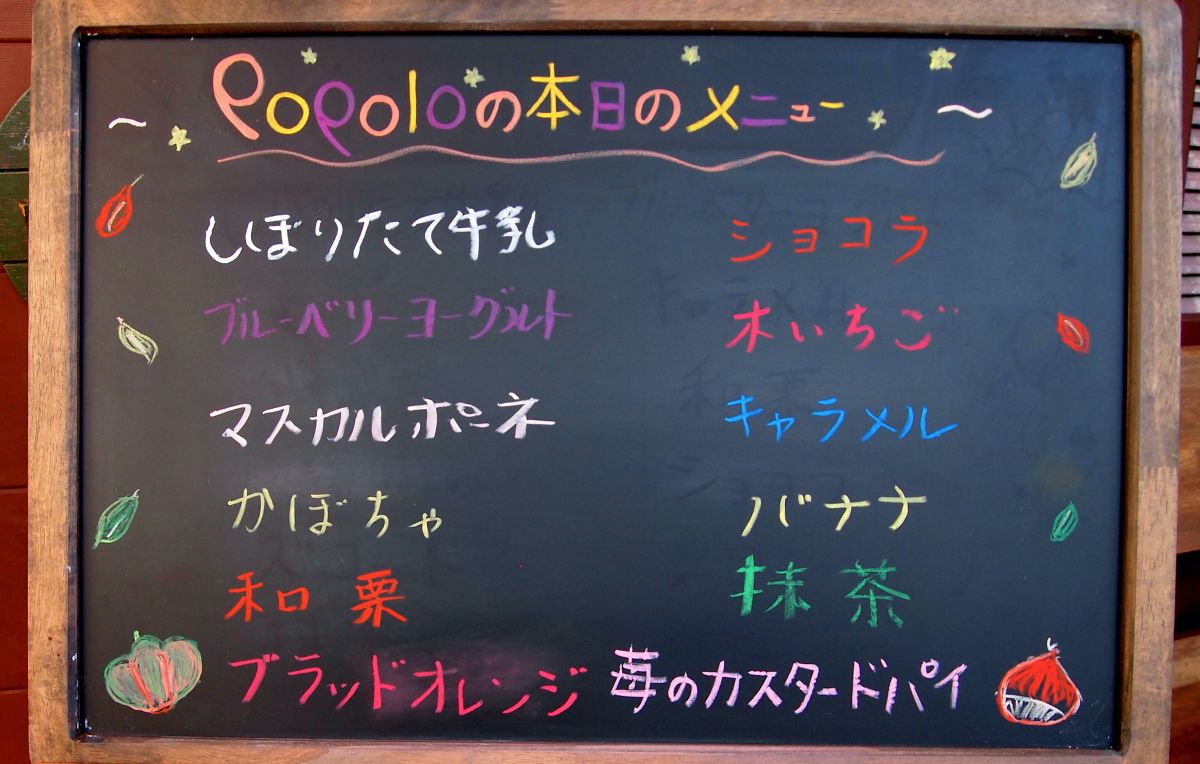 ～ Popoloの本日のメニュー ～
しぼりたて牛乳
ブルーベリーヨーグルト
マスカルポーネ
かぼちゃ
和栗
ブラッドオレンジ
ショコラ
木いちご
キャラメル
バナナ
抹茶
苺のカスタードパイ